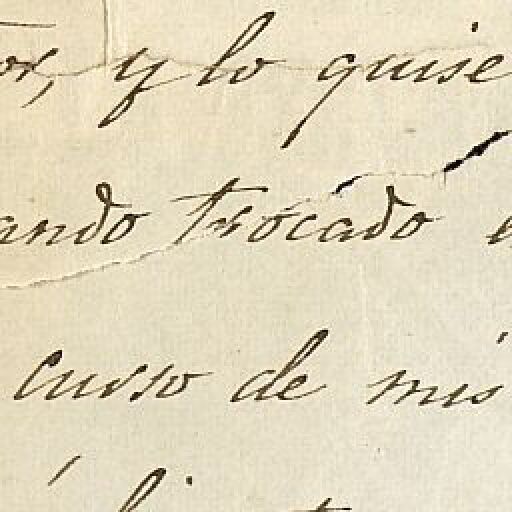 y lo quise
ando trocado
curso de mis